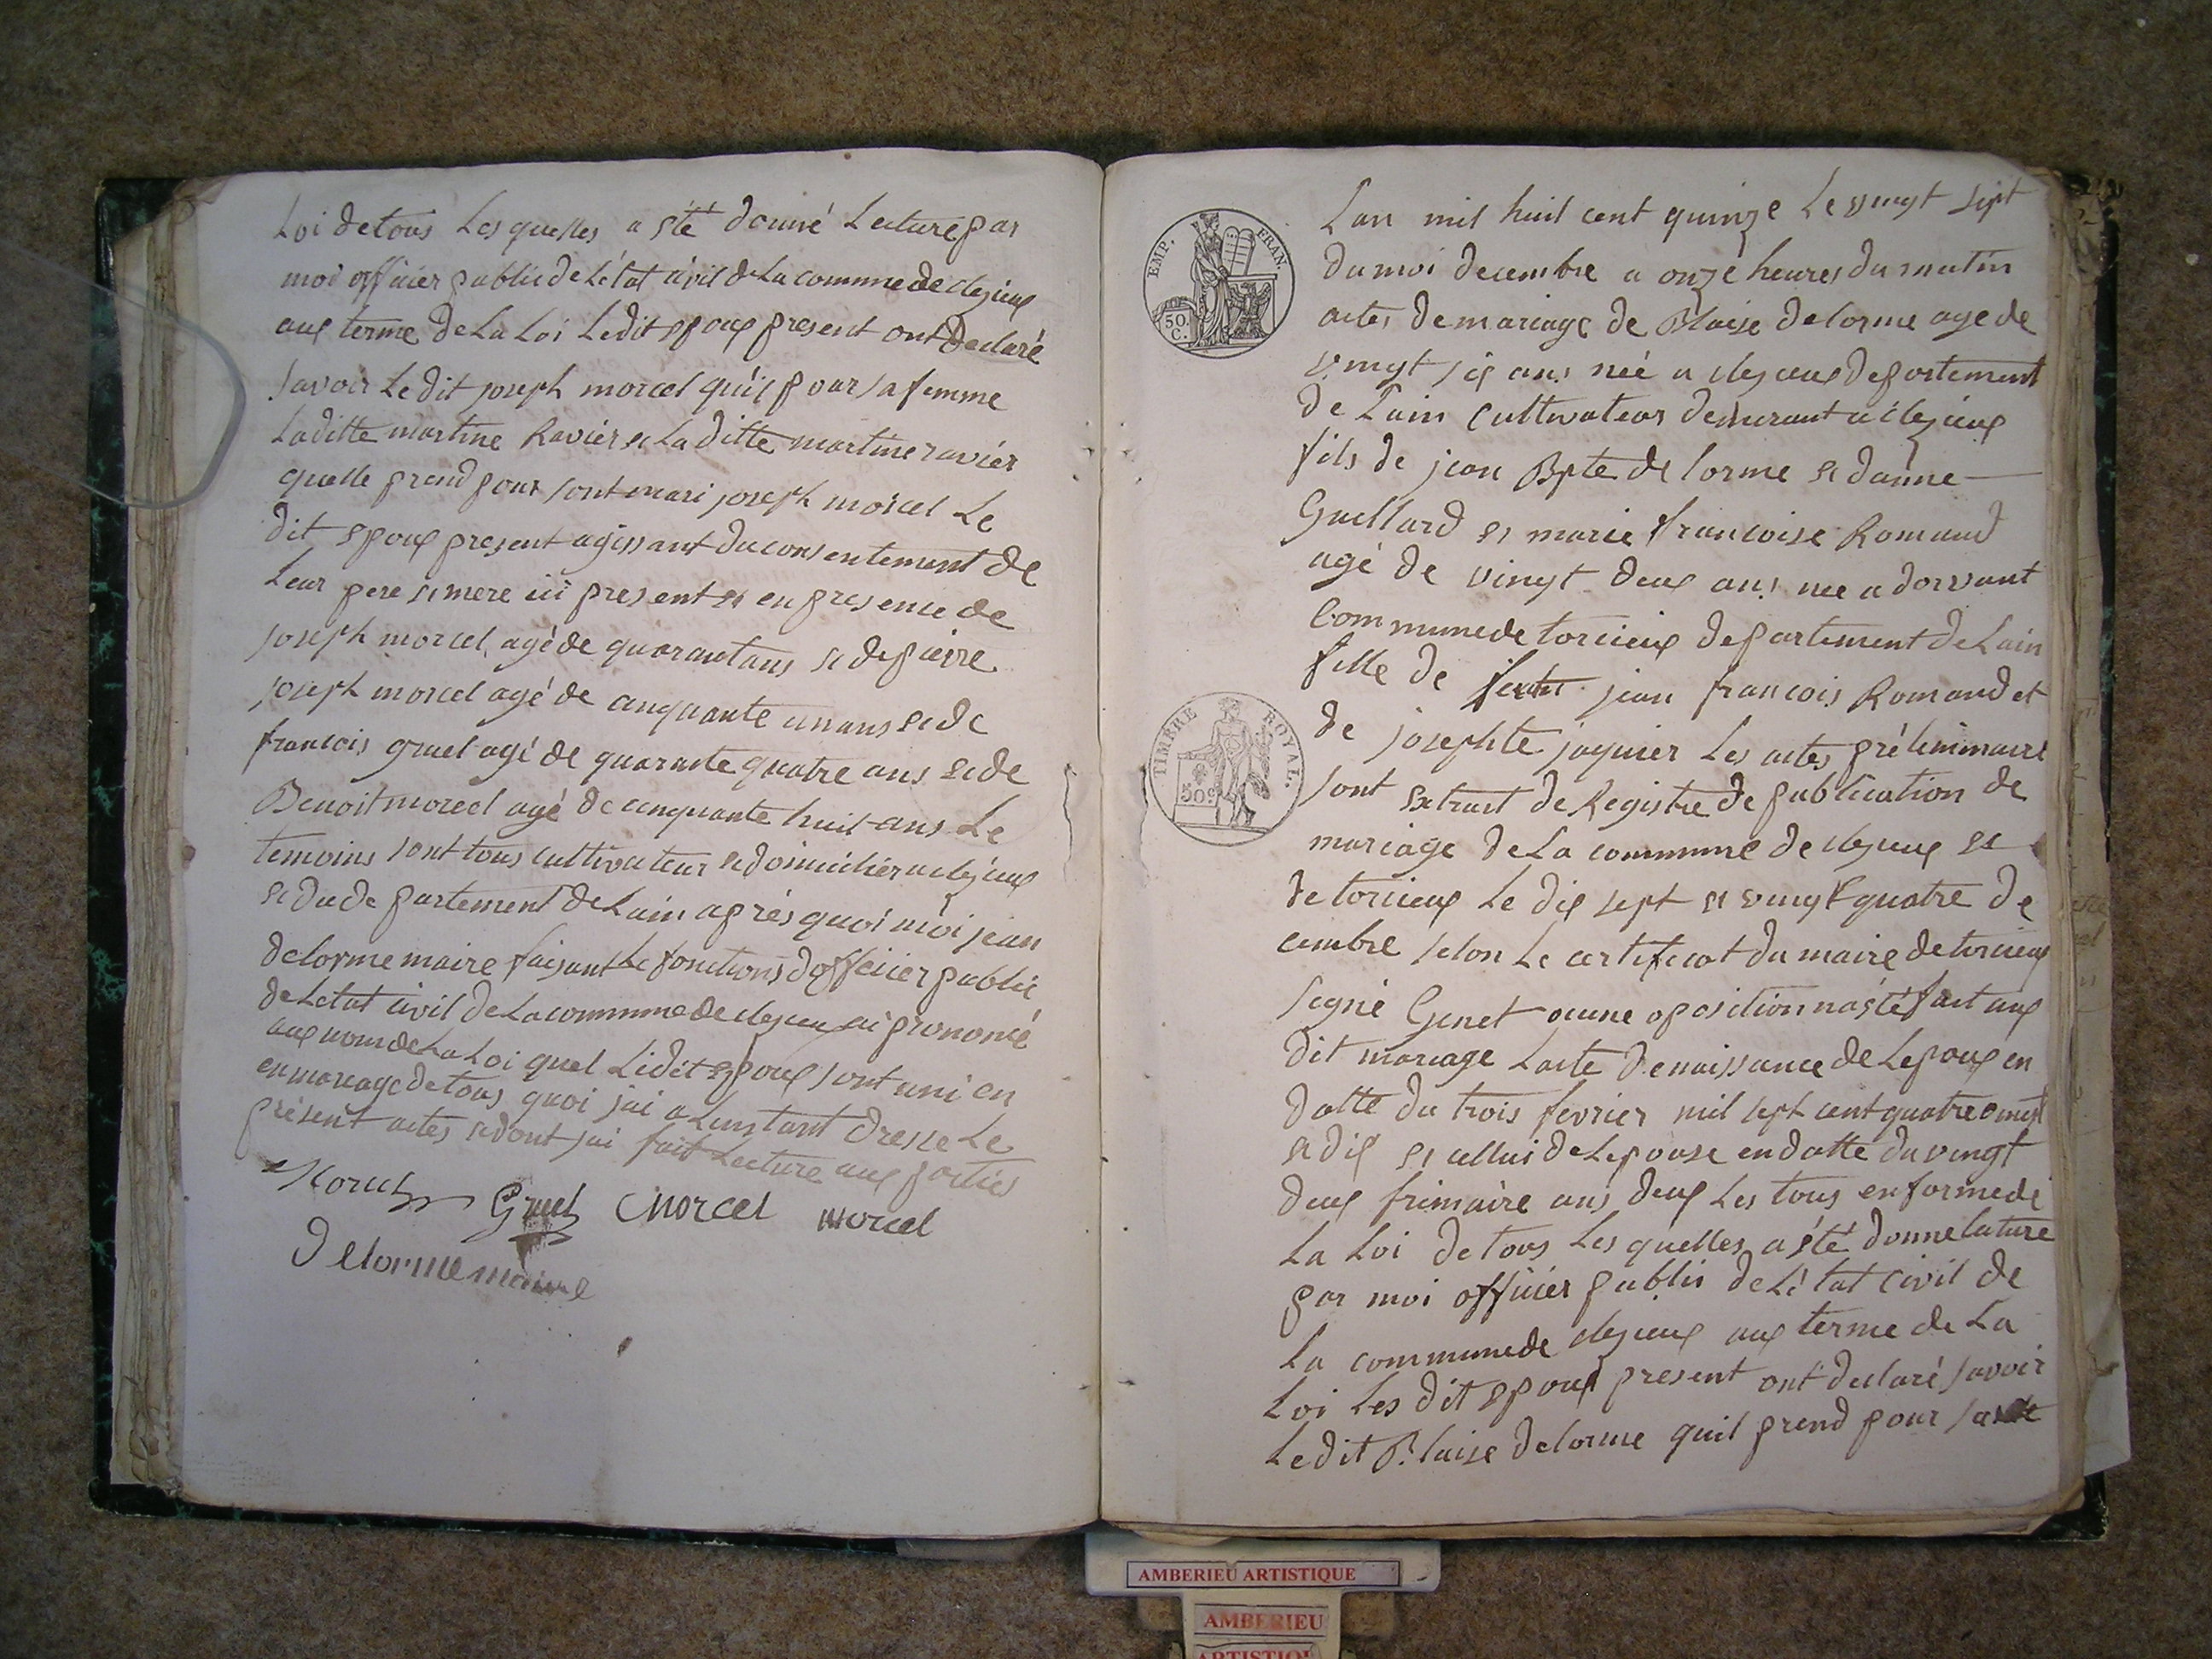 Loi de tous Les quelles a été donné Lecture par
moi officier public de Létat civil de La commune de clezieux
aux terme de La Loi Ledit epoux present ont declaré
savoir Le dit joseph morcel qu'il pour sa femme
Laditte martine Ravier et La ditte martine ravier
quelle prend pour sont mari joseph morcel Le
dit epoux present agissant du consentement de
Leur pere et mere ici present et en presence de
joseph morcel agé de quarant ans et de pierre
joseph morcel agé de cinquante un ans et de
francois gruel agé de quarante quatre ans et de
Benoit morcel agé de cinquante huit ans Le
temoins sont tous cultivateur et domicilier a clezieux
et du departement de Lain après quoi moi jean
delorme maire faisant Le fonctions dofficier public
de Letat civil de La commune de clezieux ai prononcé
aux nom de La Loi quel Ledit epoux sont uni en
en mariage de tous quoi jai a Linstant dresse Le
présent actes et dont jai fait Lecture aux parties
Morcel Gruel Morcel morcel
Delorme maire
EMP. FRAN.
50 C.
TIMBRE ROYAL.
50 c
Lan mil huit cent quinze Le vingt sept
du moi decembre a onze heures du matin
actes de mariage de Blaise delorme age de
vingt six ans neé a clezieux departement
de Lain cultivateur demeurant a clezieux
fils de jean Bpte de lorme et danne
Guillard et marie francoise Romand
agé de vingt deux ans nee a dorvant
Commune de torcieux departement de Lain
fille de jean francois Romand et
de josephte joyuier Les actes préliminaire
sont extrait de Registre de publication de
mariage de La commune de clezieux et
de torcieux Le dix sept et vingt quatre de
cembre selon Le certificat du maire de torcieux
signé Genet ocune oposition na été fait aux
dit mariage Lacte de naissance de Lepoux en
datte du trois fevrier mil sept cent quatre vingt
et dix et cellui de Lepouse en datte du vingt
deux frimaire ans deux Les tous en forme de
La Loi de tous Les quelles a été donne lecture
par moi officier publis de Létat civil de
La commune de clezieux aux terme de La
Loi Les dit epoux present ont declaré savoir
Ledit Blaise delorme quil prend pour sa
AMBERIEU ARTISTIQUE
AMBERIEU
ARTISTIQUE